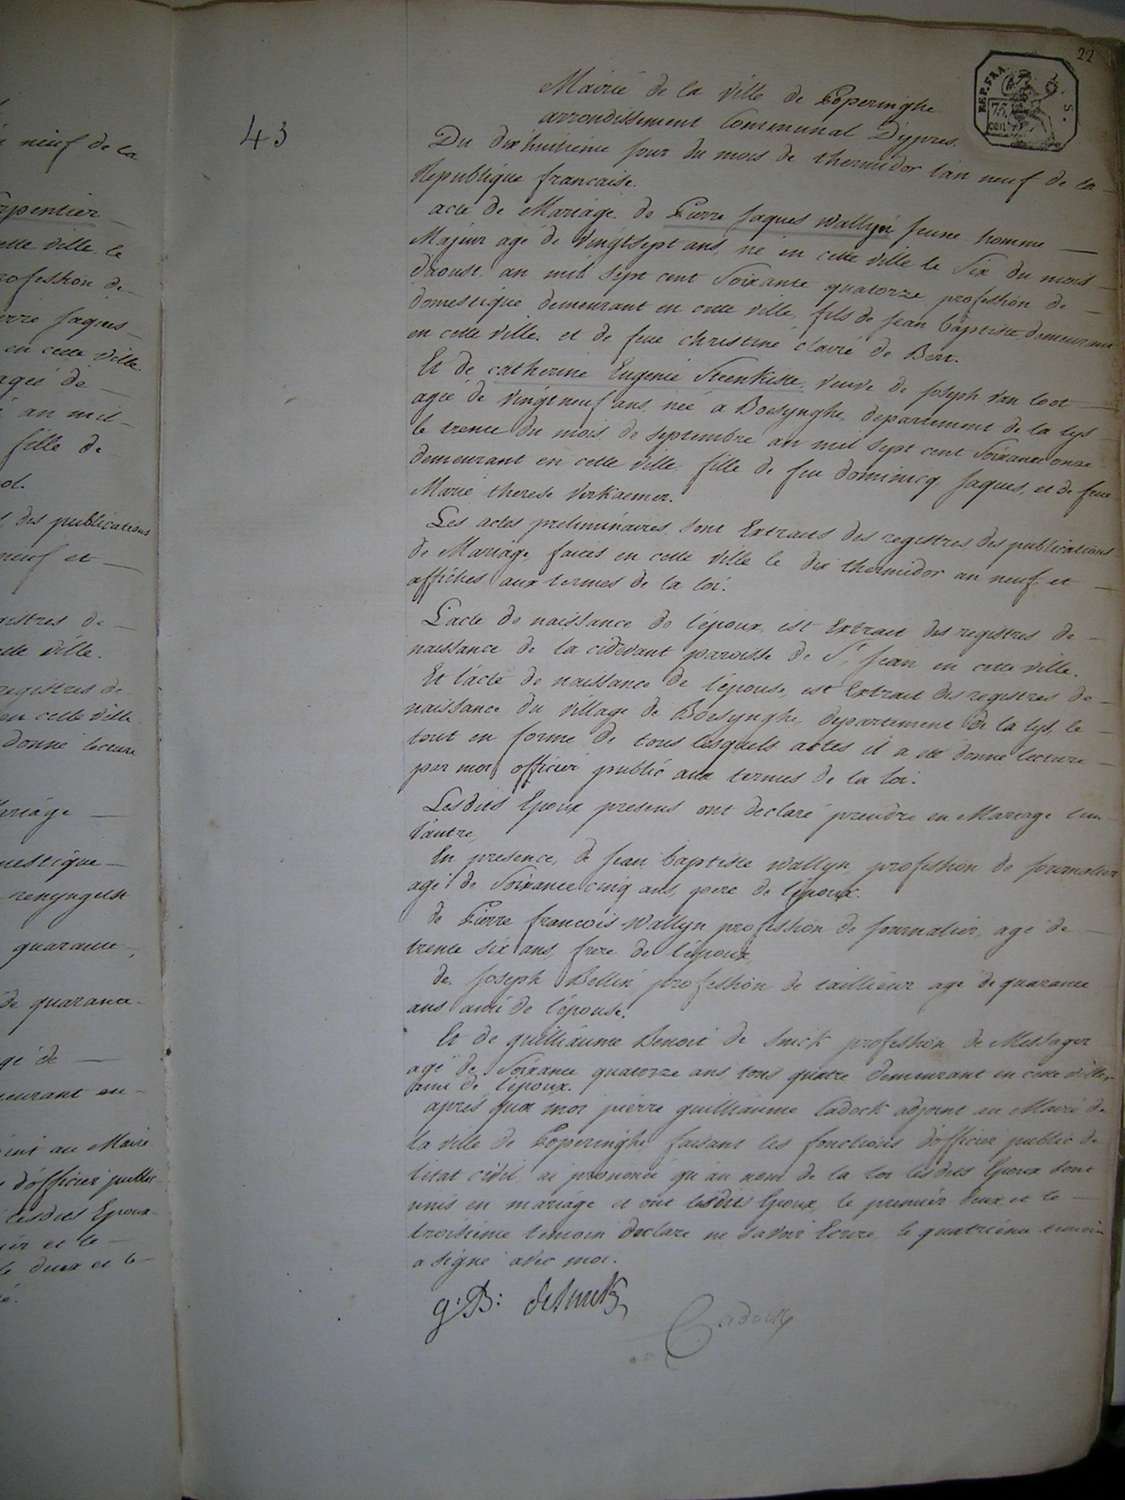 22
REP. FRA.
75
cen
43
Mairie de la ville de Poperinghe
arrondissement Communal D'ypres.
Du dixhuitieme jour du mois de thermidor l'an neuf de la
Republique francaise.
acte de Mariage de Pierre Jaques Wallyn jeune homme
Majeur agé de vingtsept ans, né en cette ville le Six du mois
d'aoust an mil sept cent Soixante quatorze profession de
domestique demeurant en cette ville, fils de jean baptiste demeurant
en cette ville. et de feue christine claire de Bert.
Et de catherine Eugenie Steenkiste, veuve de joseph van
agée de vingtneuf ans, née a Boesynghe, departement de la lys
le trente du mois de septembre an mil sept cent Soixante onze
demeurant en cette ville fille de feu dominicq Jaques, et de feue
Marie therese
Les actes preliminaires sont Extraits des registres des publications
de Mariage faites en cette ville le dix thermidor an neuf et
affichés aux termes de la loi.
L'acte de naissance de l'epoux est Extrait des registres de
naissance de la cidevant paroisse de St. Jean en cette ville.
Et l'acte de naissance de l'epouse est Extrait des registres de
naissance du village de Boesynghe, departement de la lys, le
tout en forme de tous lesquels actes il a été donné lecture
par moi officier public aux termes de la loi.
Lesdits Epoux presens ont declaré prendre en Mariage l'un
l'autre,
En presence, de jean baptiste wallyn profession de journalier
agé de Soixante cinq ans, pere de l'epoux.
de Pierre francois Wallyn profession de journalier, agé de
trente six ans, frere de l'epoux
de Joseph Bellin profession de tailleur agé de quarante
ans ami de l'epouse.
Et de guilliaume Benoit de Smick profession de Messager
agé de Soixante quatorze ans, tous quatre demeurant en cette ville
ami de l'epoux.
après quoi moi pierre guilliaume Cadock adjoint au Maire de
la ville de Poperinghe faisant les fonctions d'officier public de
l'etat civil ai prononcé qu'au nom de la loi lesdits Epoux sont
unis en mariage et ont lesdits Epoux, le premier deux et le
troisieme temoin declaré ne savoir Ecrire, le quatrieme temoin
a signé avec moi.
g: B: desmick
Cadock
neuf de la
cette ville le
profession de
en cette ville.
agée de
an mil
fille de
des publications
neuf et
registres de
cette ville.
registres de
en cette ville
donné lecture
mariage
quarante,
de quarante
agé de
demeurant en
adjoint au Maire
d'officier public
lesdits Epoux